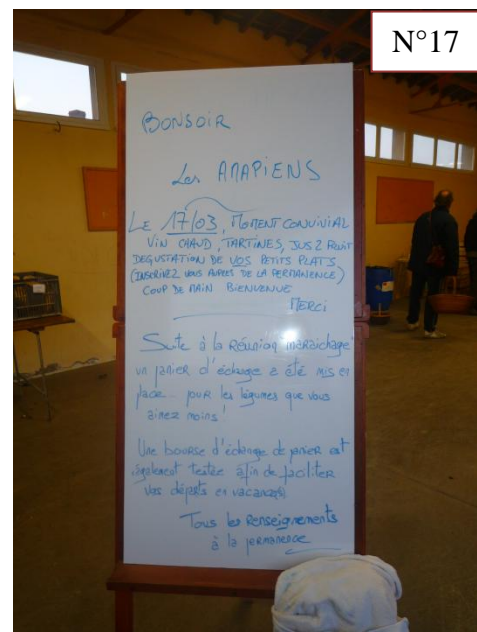 N°17
BONSOIR
Les AMAPIENS
LE 17/03, MOMENT CONVIVIAL
VIN CHAUD, TARTINES, JUS 2 FRUIT
DEGUSTATION DE VOS PETITS PLATS
(INSCRIVEZ VOUS AUPRES DE LA PERMANENCE)
COUP DE MAIN BIENVENUE
MERCI
Suite à la Réunion maraichage
un panier d'échange a été mis en
place... pour les légumes que vous
aimez moins!
Une bourse d'échange de panier est
également testée afin de faciliter
vos départs en vacances.
Tous les Renseignements
à la permanence